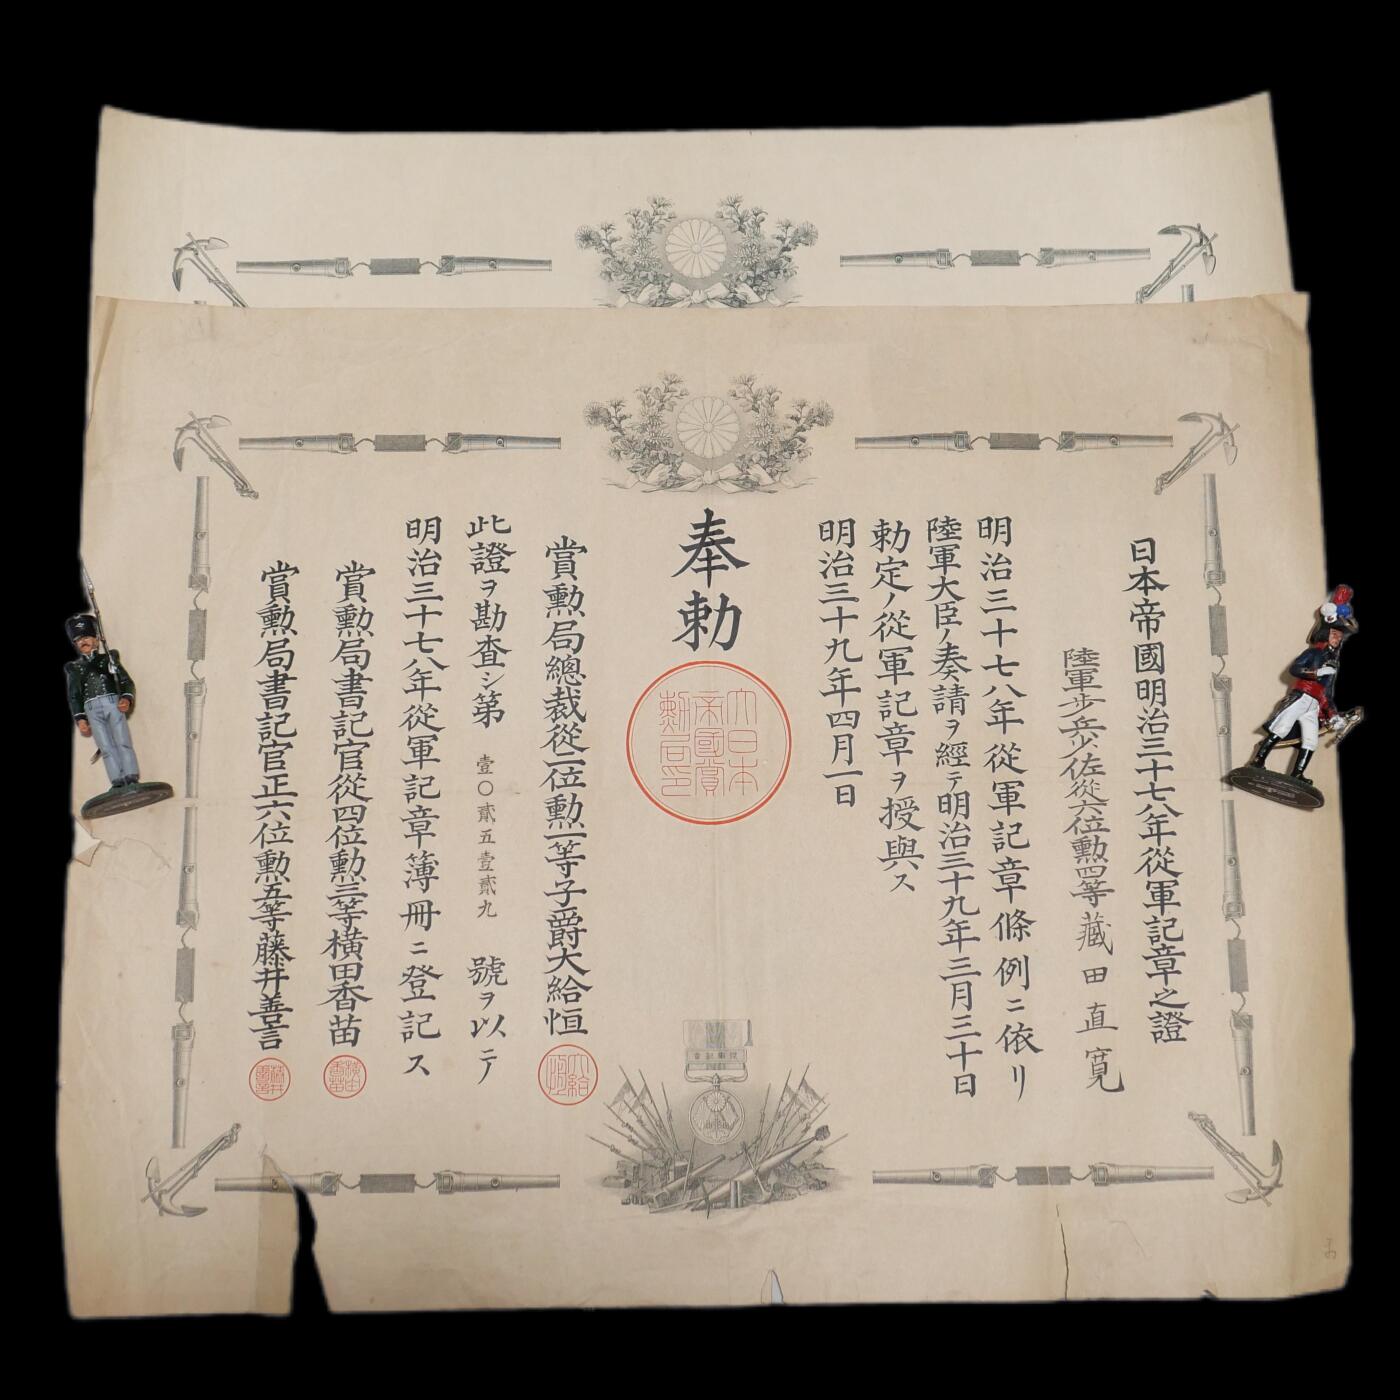 日本帝國明治三十七八年從軍記章之證
陸軍歩兵少佐從六位勲四等藏田直寛
明治三十七八年從軍記章條例ニ依リ
陸軍大臣ノ奏請ヲ經テ明治三十九年三月三十日
勅定ノ從軍記章ヲ授與ス
明治三十九年四月一日
奉勅
大日本
帝國賞
勲局印
賞勲局總裁從二位勲一等子爵大給恒
大給
恒
此證ヲ勘査シ第壹〇貳五壹貳九號ヲ以テ
明治三十七八年從軍記章簿冊ニ登記ス
賞勲局書記官從四位勲三等横田香苗
横田
香苗
賞勲局書記官正六位勲五等藤井善言
藤井
善言
章記軍從